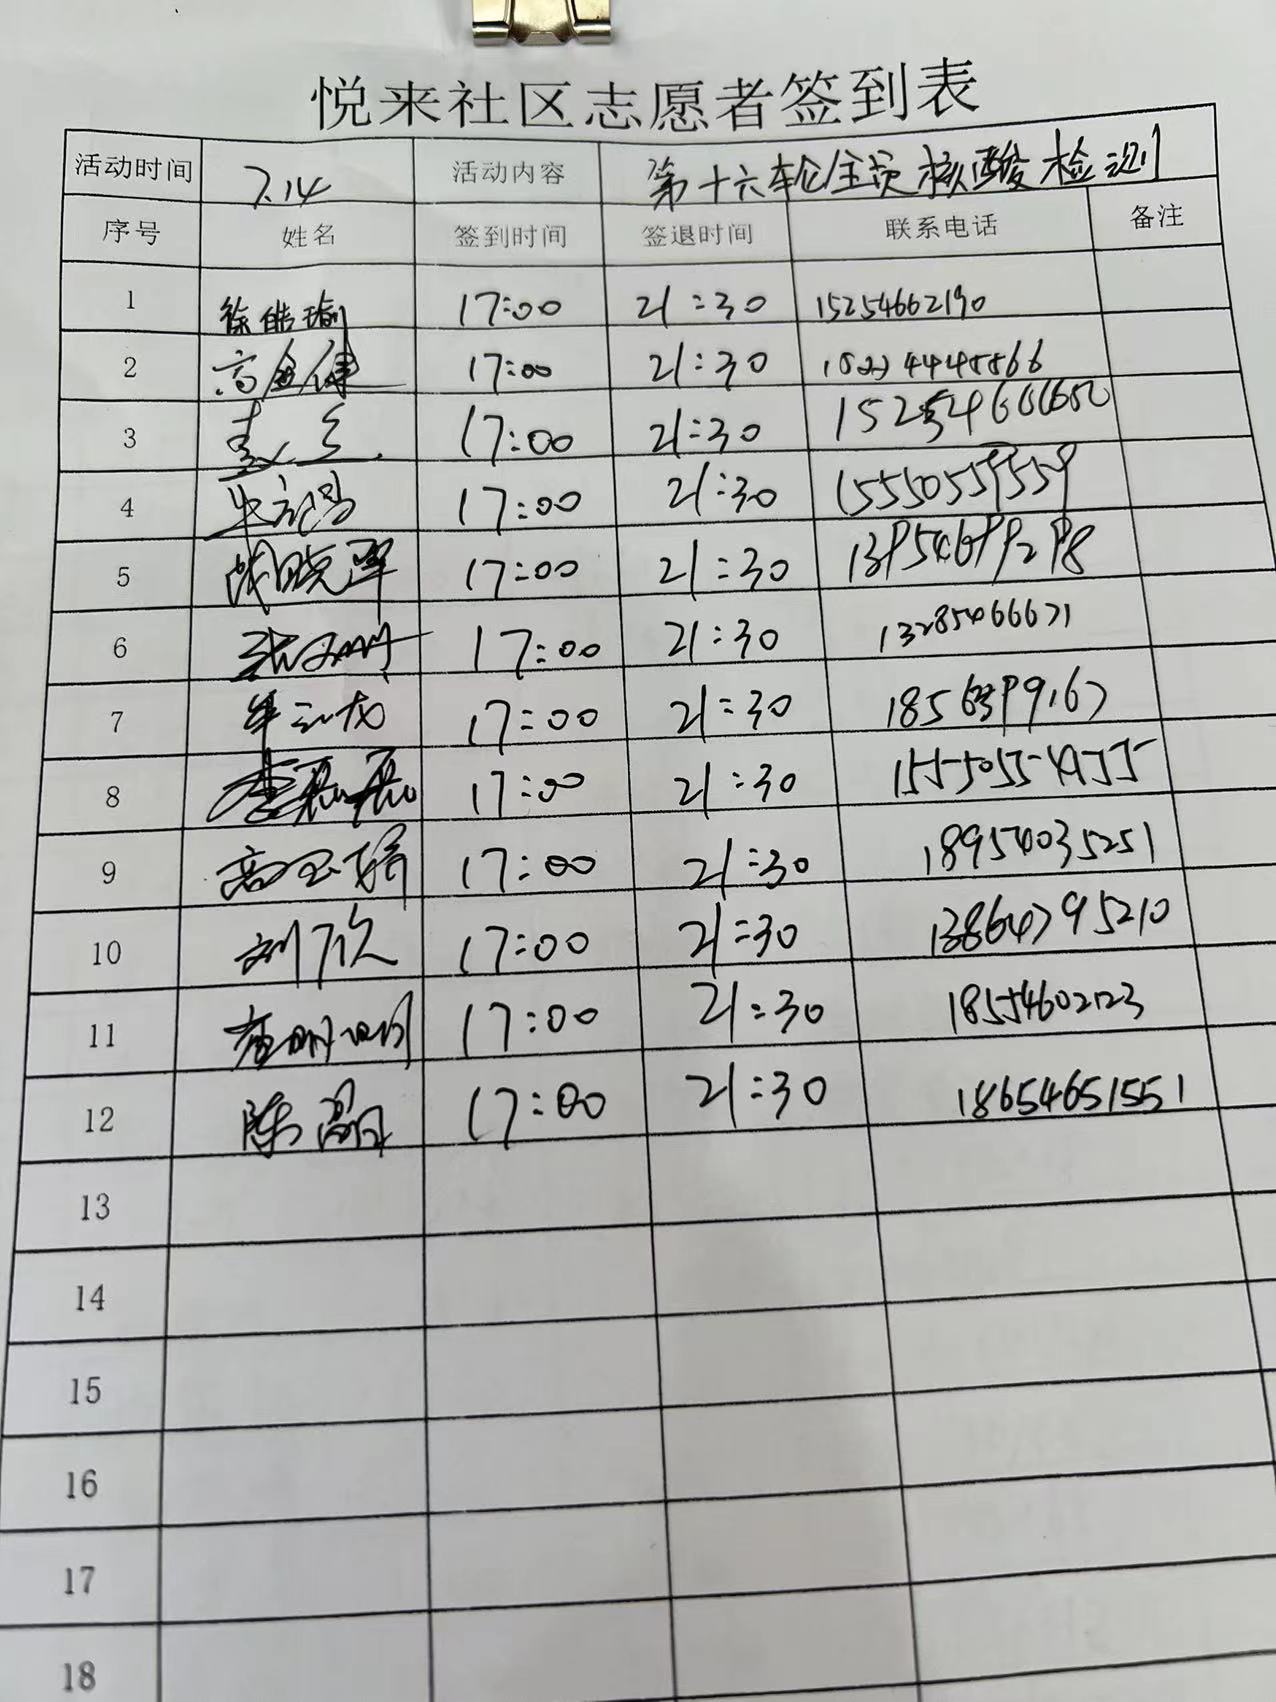 悦来社区志愿者签到表
活动时间 7.14 活动内容 第十六轮全员核酸检测
序号 姓名 签到时间 签退时间 联系电话 备注
1 徐皓瑜 17:00 21:30 15254662190
2 高金健 17:00 21:30
3 17:00 21:30
4 17:00 21:30 15550559559
5 晓军 17:00 21:30 13954699298
6 张 17:00 21:30 13285466671
7 牟云龙 17:00 21:30
8 李磊磊 17:00 21:30
9 高玉婧 17:00 21:30 18954035251
10 刘欣 17:00 21:30 13864795210
11 17:00 21:30 18554602123
12 陈晶 17:00 21:30 18654651551
13
14
15
16
17
18